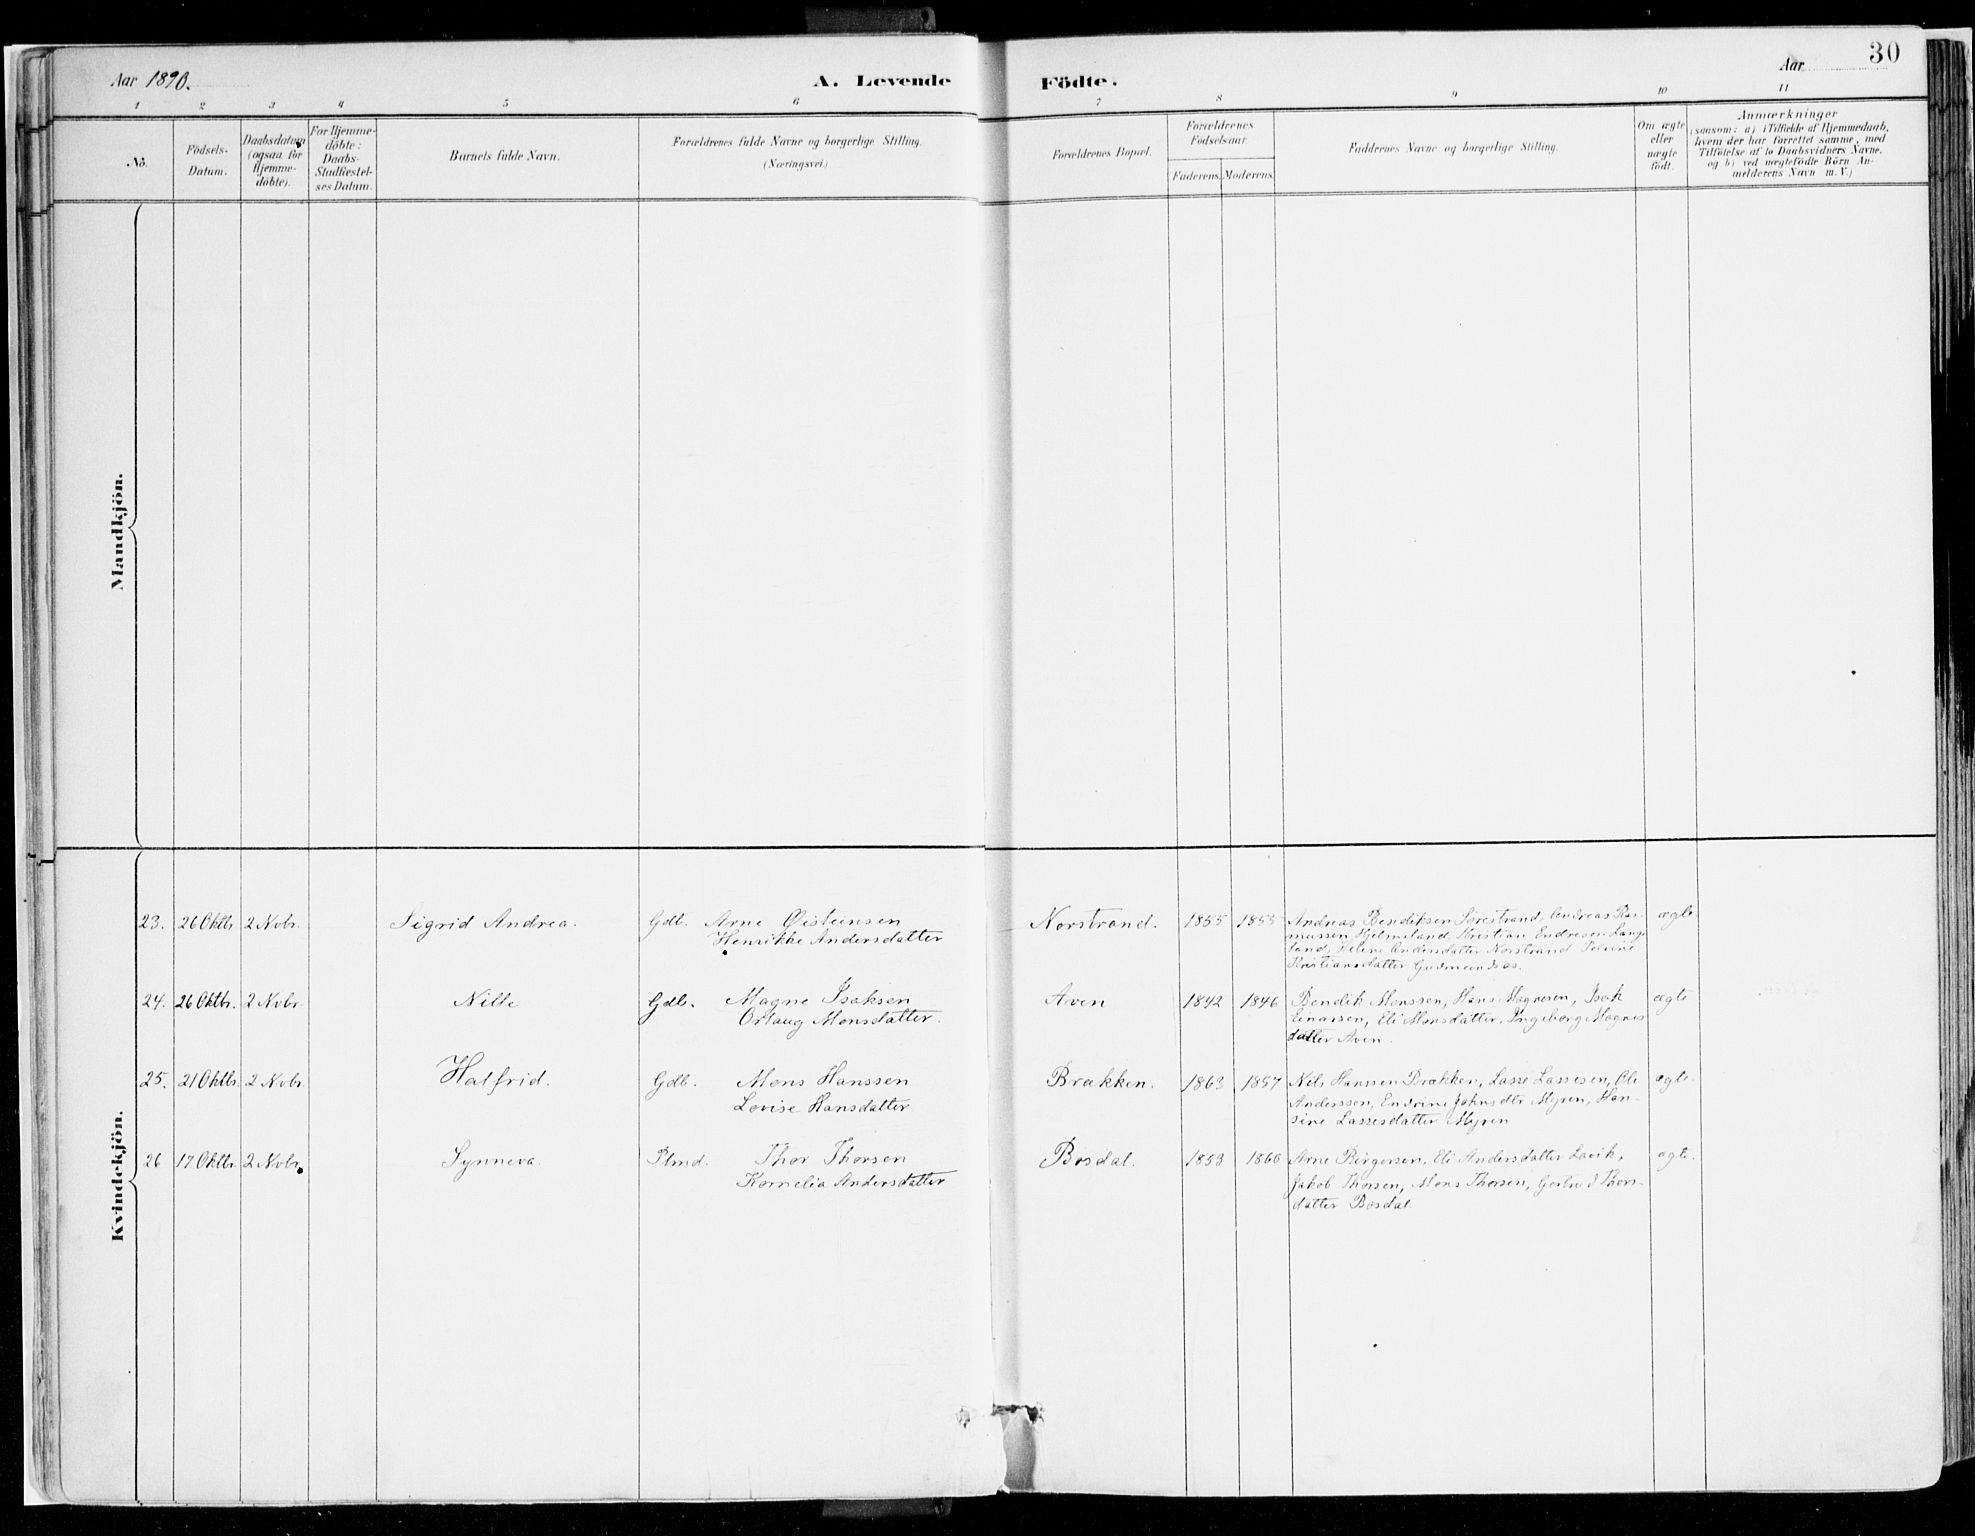 Aar 1890.
A. Levende Födte.
Aar
30
1 2 3 4 5 6 7 8 9 10 11
No.
Födsels-
Datum.
Daabsdatum
(ogsaa for
Hjemme-
döbte).
For Hjemme-
döbte:
Daabs-
Stadfæstel-
ses Datum.
Barnets fulde Navn.
Forældrenes fulde Navne og borgerlige Stilling.
(Næringsvei.)
Forældrenes Bopæl.
Forældrenes
Födselsaar.
Faderens. Moderens.
Faddernes Navne og borgerlige Stilling.
Om ægte
eller
uægte
födt.
Anmærkninger
(saasom: a) i Tilfælde af Hjemmedaab,
hvem der har forrettet samme, med
Tilföielse af to Daabsvidners Navne.
og b) ved uægtefödte Börn An-
melderens Navn m. V.)
Mandkjön.
Kvindekjön.
23. 26 Oktbr 2 Novbr. Sigrid Andrea. Gdb. Arne Øisteinsen
Henrikke Andersdatter
Norstrand. 1855 1855 Andreas Bendiksen Sørestrand, Andreas Ras-
mussen Hjelmeland, Kristian Endresen Lange-
land, Helene Andersdatter Norstrand
Kristiansdatter
ægte
24. 26 Oktbr. 2 Novbr Nille Gdb. Magne Isaksen
Orlaug Monsdatter.
Aven 1842 1846 Bendik Monssen, Hans Magnesen, Isak
Einarsen, Eli Monsdatter, Ingeborg Magnes
datter Aven.
ægte
25. 21 Oktbr. 2 Novbr. Halfrid. Gdb. Mons Hanssen
Lovise Hansdatter
Brækken. 1863 1857 Nils Hanssen Brækken, Lasse Lassesen, Ole
Anderssen, Endrine Jahnsdtr Myren, Han-
sine Lassesdatter Myren
ægte.
26 17 Oktbr. 2 Novbr. Synneva. Plmd. Thor Thorsen
Kornelia Andersdatter
Bosdal. 1853 1860 Arne Birgersen, Eli Andersdatter Lavik,
Jakob Thorsen, Mons Thorsen, Gertrud Thors-
datter Bosdal
ægte.